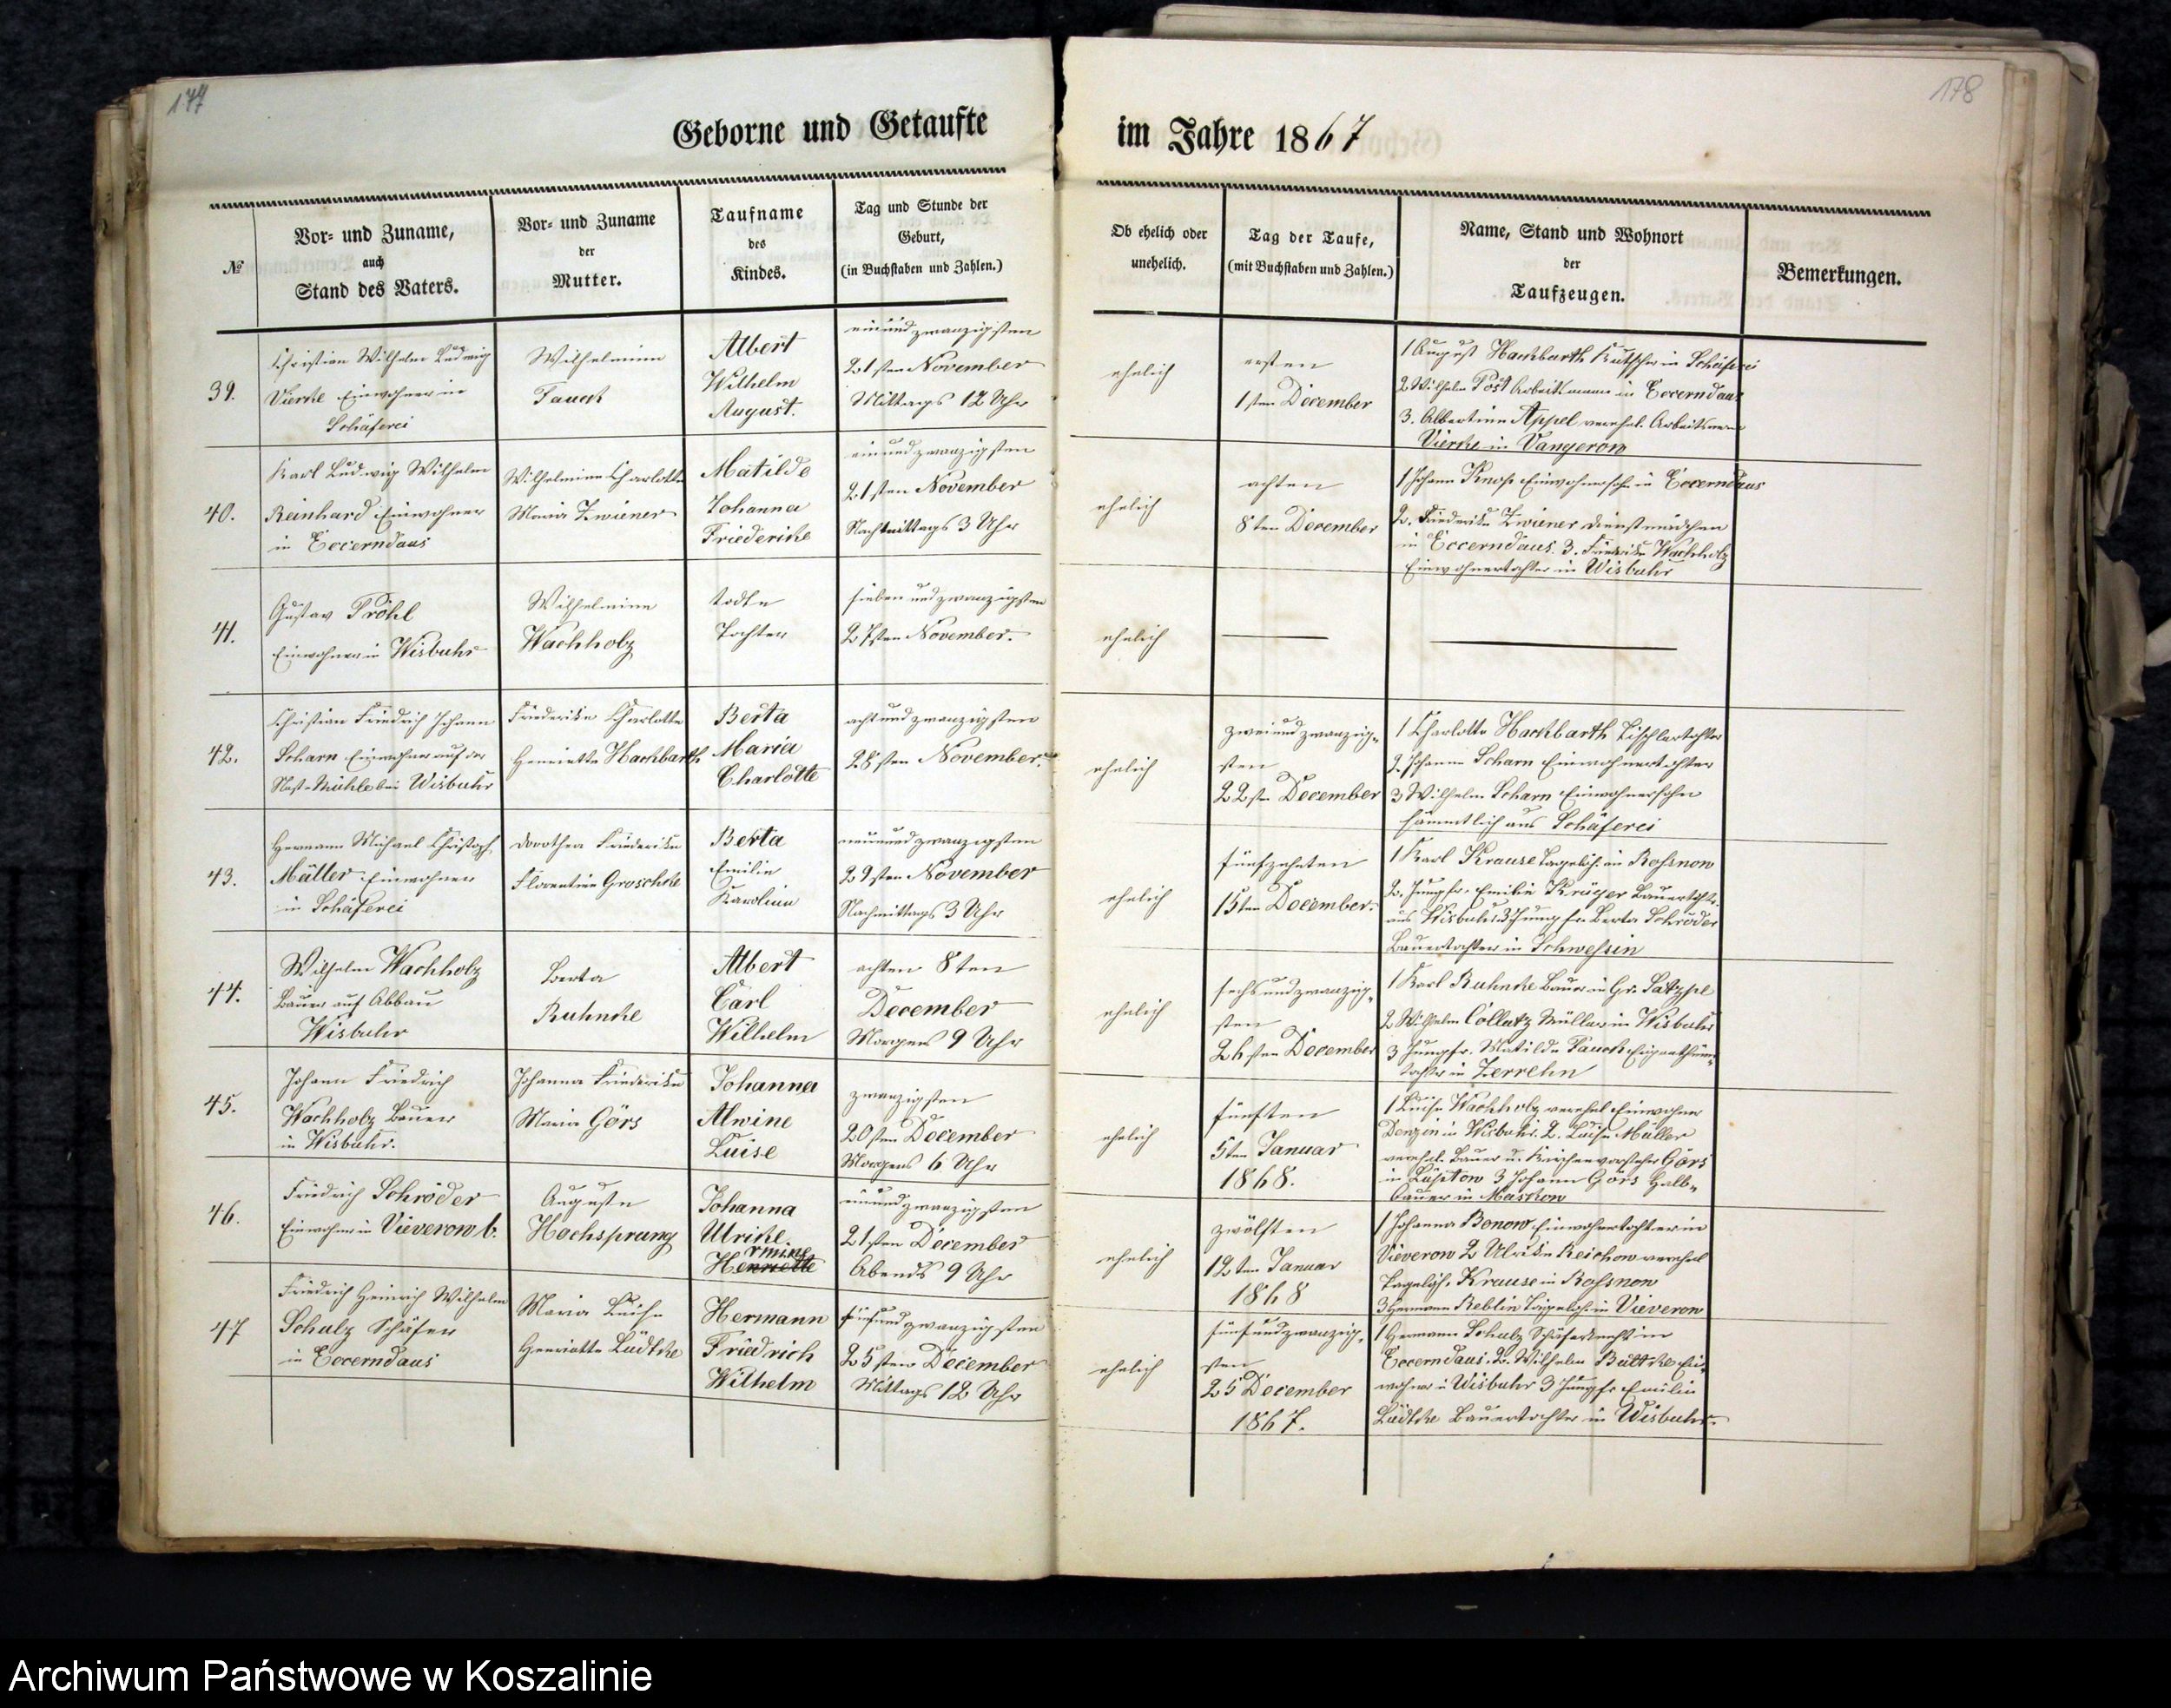 177
Geborne und Getaufte
№
Vor- und Zuname,
auch
Stand des Vaters.
Vor- und Zuname
der
Mutter.
Taufname
des
Kindes.
Tag und Stunde der
Geburt,
(in Buchstaben und Zahlen.)
39.
Christian Wilhelm Ludwig
Vierke Einwohner in
Schäferei
Wilhelmine
Pauch
Albert
Wilhelm
August.
einundzwanzigsten
21sten November
Mittags 12 Uhr
40.
Karl Ludwig Wilhelm
Reinhard Einwohner
in Eccerndaus
Wilhelmine Charlotte
Maria Zwiener
Matilde
Johanna
Friederike
einundzwanzigsten
21sten November
Nachmittags 3 Uhr
41.
Gustav Pröhl
Einwohner in Wisbuhr
Wilhelmine
Wachholz
todte
Tochter
siebenundzwanzigsten
27sten November.
42.
Christian Friedrich Johann
Scharn Einwohner auf der
Nest-Mühle bei Wisbuhr
Friederike Charlotte
Henriette Hackbarth
Berta
Maria
Charlotte
achtundzwanzigsten
28sten November.
43.
Hermann Michael Christoph
Müller Einwohner
in Schäferei
Dorothea Friederike
Florentine Groschke
Berta
Emilie
Karoline
neunundzwanzigsten
29sten November
Nachmittags 3 Uhr
44.
Wilhelm Wachholz
Bauer auf Abbau
Wisbuhr
Berta
Ruhnke
Albert
Carl
Wilhelm
achten 8ten
December
Morgens 9 Uhr
45.
Johann Friedrich
Wachholz Bauer
in Wisbuhr.
Johanna Friederike
Maria Görs
Johanna
Alwine
Luise
zwanzigsten
20sten December
Morgens 6 Uhr
46.
Friedrich Schröder
Einwohner in Vieverow b.
Auguste
Hochsprung
Johanna
Ulrike.
rmine
Henriette
einundzwanzigsten
21sten December
Abends 9 Uhr
47
Friedrich Heinrich Wilhelm
Schulz Schäfer
in Eccerndaus
Maria Luise
Henriette Lüdtke
Hermann
Friedrich
Wilhelm
fünfundzwanzigsten
25sten December
Mittags 12 Uhr
178
im Jahre 1867
Ob ehelich oder
unehelich.
Tag der Taufe,
(mit Buchstaben und Zahlen.)
Name, Stand und Wohnort
der
Taufzeugen.
Bemerkungen.
ehelich
ersten
1sten December
1 August Hackbarth Kutscher in Schäferei
2 Wilhelm Post Arbeitsmann in Eccerndaus
3. Albertine Appel verehel. Arbeitsmann
Vierke in Vangerow
ehelich
achten
8ten December
1 Johann Knop Einwohnersohn in Eccerndaus
2. Friederike Zwiener Dienstmädchen
in Eccerndaus. 3. Friederike Wachholz
Einwohnertochter in Wisbuhr
ehelich
ehelich
zweiundzwanzig-
sten
22sten December
1 Charlotte Hackbarth Tischlertochter
2. Johanne Scharn Einwohnertochter
3 Wilhelm Scharn Einwohnersohn
sämmtlich aus Schäferei
ehelich
fünfzehnten
15ten December.
1 Karl Krause Tagelöh. in Rossnow
2. Jungfr. Emilie Krüger Bauertocht.
aus Wisbuhr 3 Jungfr. Berta Schröder
Bauertochter in Schwessin
ehelich
sechsundzwanzig-
sten
26sten December
1 Karl Ruhnke Bauer in Gr. Satspe
2 Wilhelm Collatz Müller in Wisbuhr
3 Jungfr. Matilde Pauch Eigenthüm-
tochter in Zerrehn
ehelich
fünften
5ten Januar
1868.
1 Luise Wachholz verehel. Einwohner
Denzin in Wisbuhr. 2. Luise Müller
verehel. Bauer u. Kirchenvorsteher Görs
in Lüptow 3 Johann Görs Halb-
bauer in Maskow
ehelich
zwölften
12ten Januar
1868
1 Johanna Bonow Einwohnertochter in
Vieverow 2 Ulrike Reichow verehel
Tagelöh. Krause in Rossnow
3 Hermann Reblin Tagelöh. in Vieverow
ehelich
fünfundzwanzig-
sten
25 December
1867.
1 Hermann Schulz Schäferknecht in
Eccerndaus. 2. Wilhelm Bültke Ein-
wohner in Wisbuhr 3 Jungfr Emilie
Lüdtke Bauertochter in Wisbuhr.
Archiwum Państwowe w Koszalinie